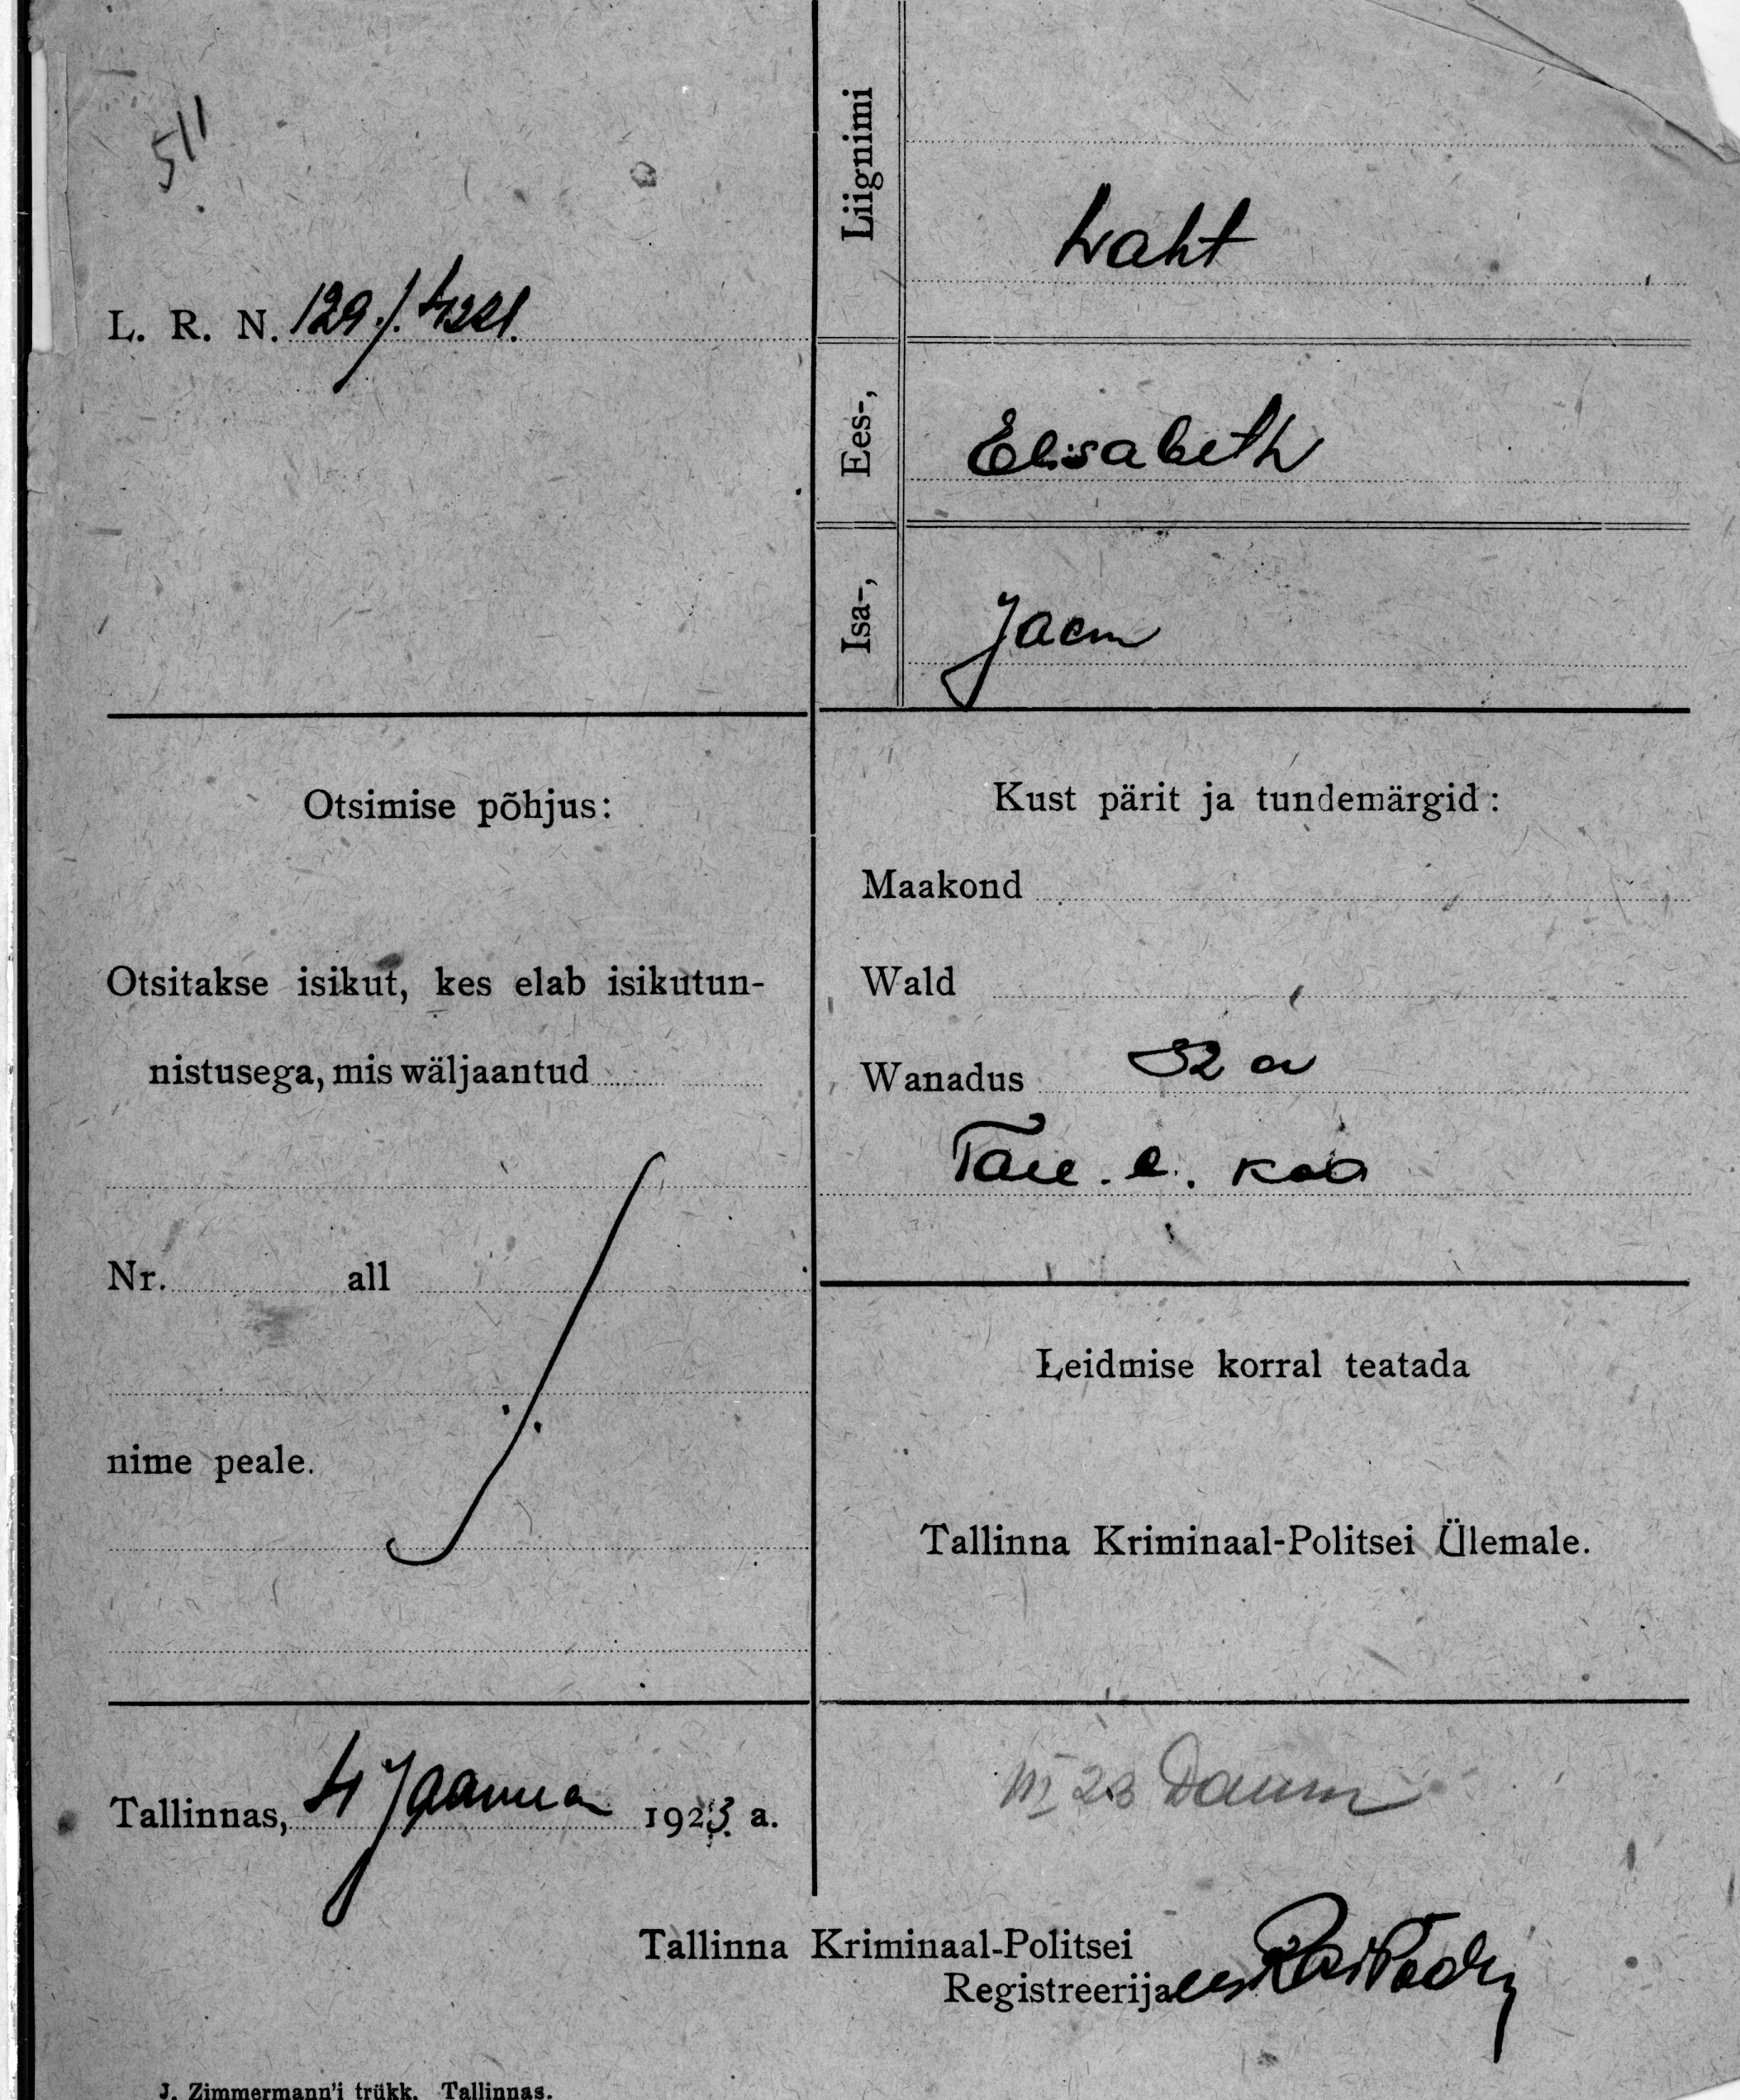 511
L. R. N. 129./.4321.
Liignimi
Waht
Ees-,
Elisabeth
Isa-,
Jaan
Otsimise põhjus:
Otsitakse isikut, kes elab isikutun-
nistusega, mis wäljaantud
Nr. all
nime peale.
Kust pärit ja tundemärgid:
Maakond
Wald
Wanadus 32 a
Tall. l. kod
Leidmise korral teatada
Tallinna Kriminaal-Politsei Ülemale.
Tallinnas, 4 Jaanuar 1923. a.
III 23
Tallinna Kriminaal-Politsei
Registreerija
J. Zimmermann'i trükk. Tallinnas.